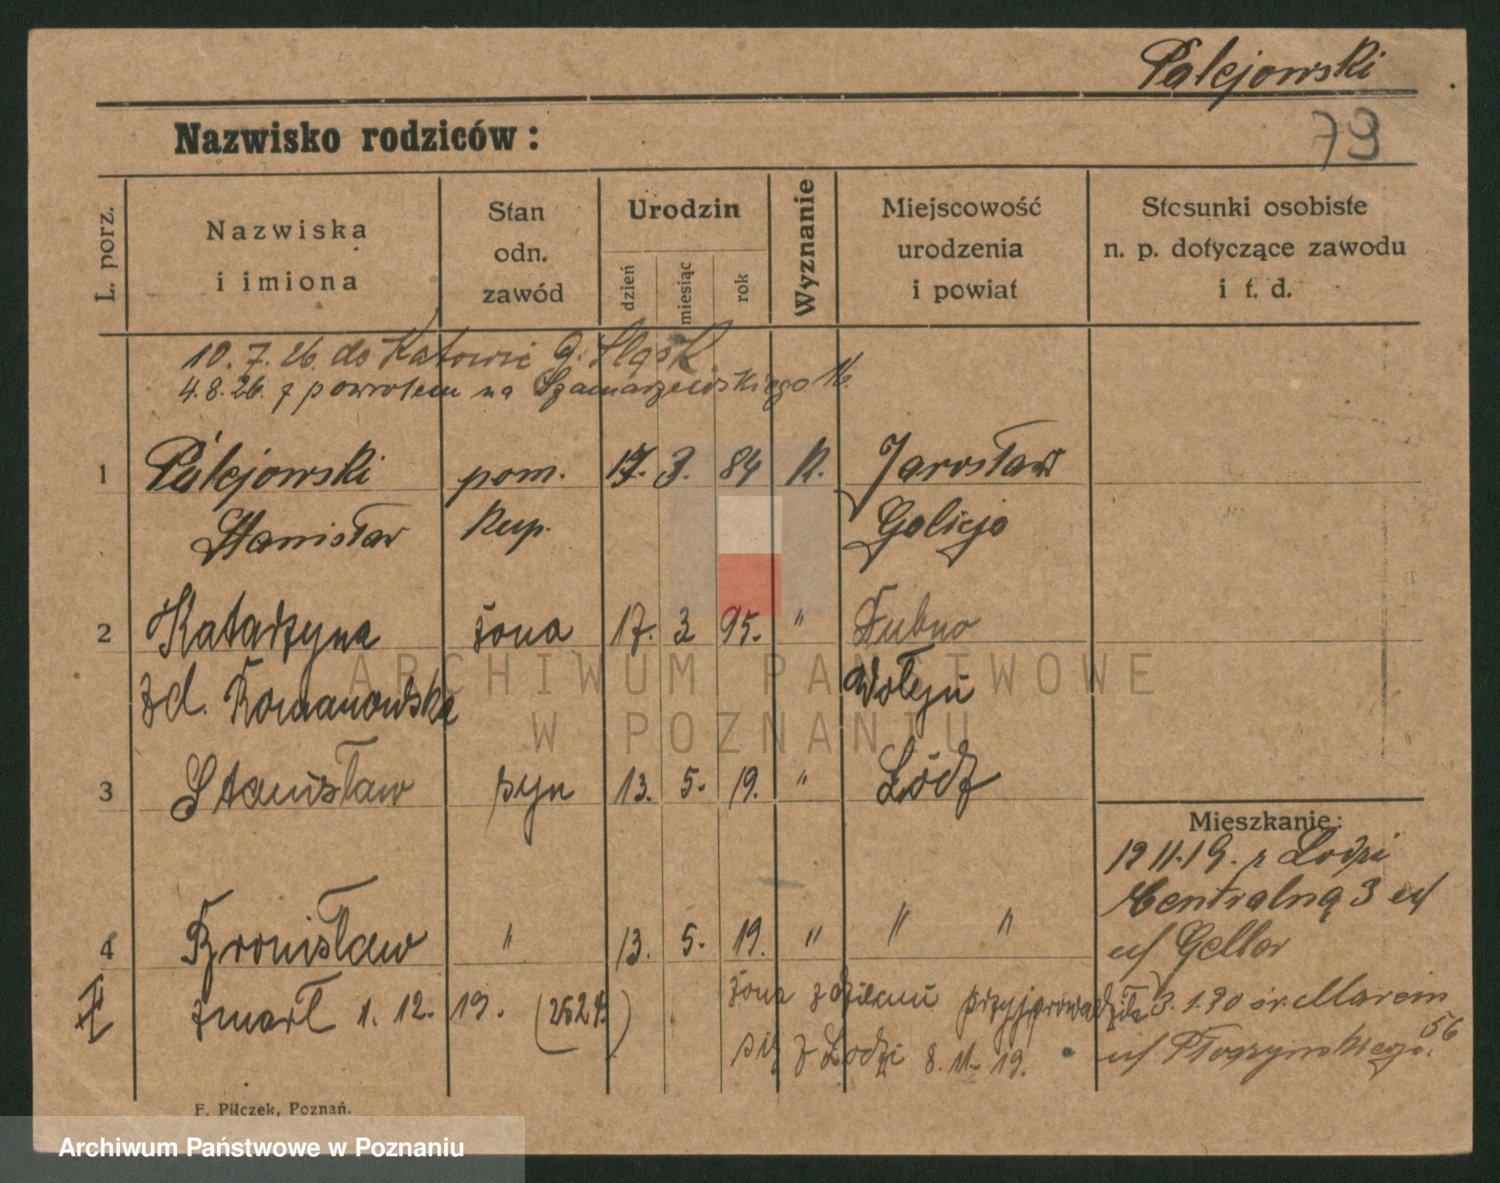 Palejowski
79
Nazwisko rodziców:
L. porz.
Nazwiska
i imiona
Stan
odn.
zawód
Urodzin
dzień
miesiąc
rok
Wyznanie
Miejscowość
urodzenia
i powiat
Stosunki osobiste
n. p. dotyczące zawodu
i t. d.
10. 7. 26. do Katowic G. Śląsk
4. 8. 26. z powrotem na Szamarzewskiego 16.
1 Palejowski pom. 17. 3. 84 K. Jarosław
Stanisław kup. Galicja
2 Katarzyna żona 17. 3 95. " Dubno
zd. Romanowska Wołyń
3 Stanisław syn 13. 5. 19. " Łódź
Mieszkanie:
19 11.19. z Łodzi
Centralną 3
u/ Gellar
4 Bronisław " 13. 5. 19. " " "
zmarł 1. 12. 19. (2624)
żona z dziećmi przyprowadziła
się z Łodzi 8. 11. 19.
3. 1.20 św. Marcin 56
u/
F. Pilczek, Poznań.
ARCHIWUM PAŃSTWOWE
W POZNANIU
Archiwum Państwowe w Poznaniu